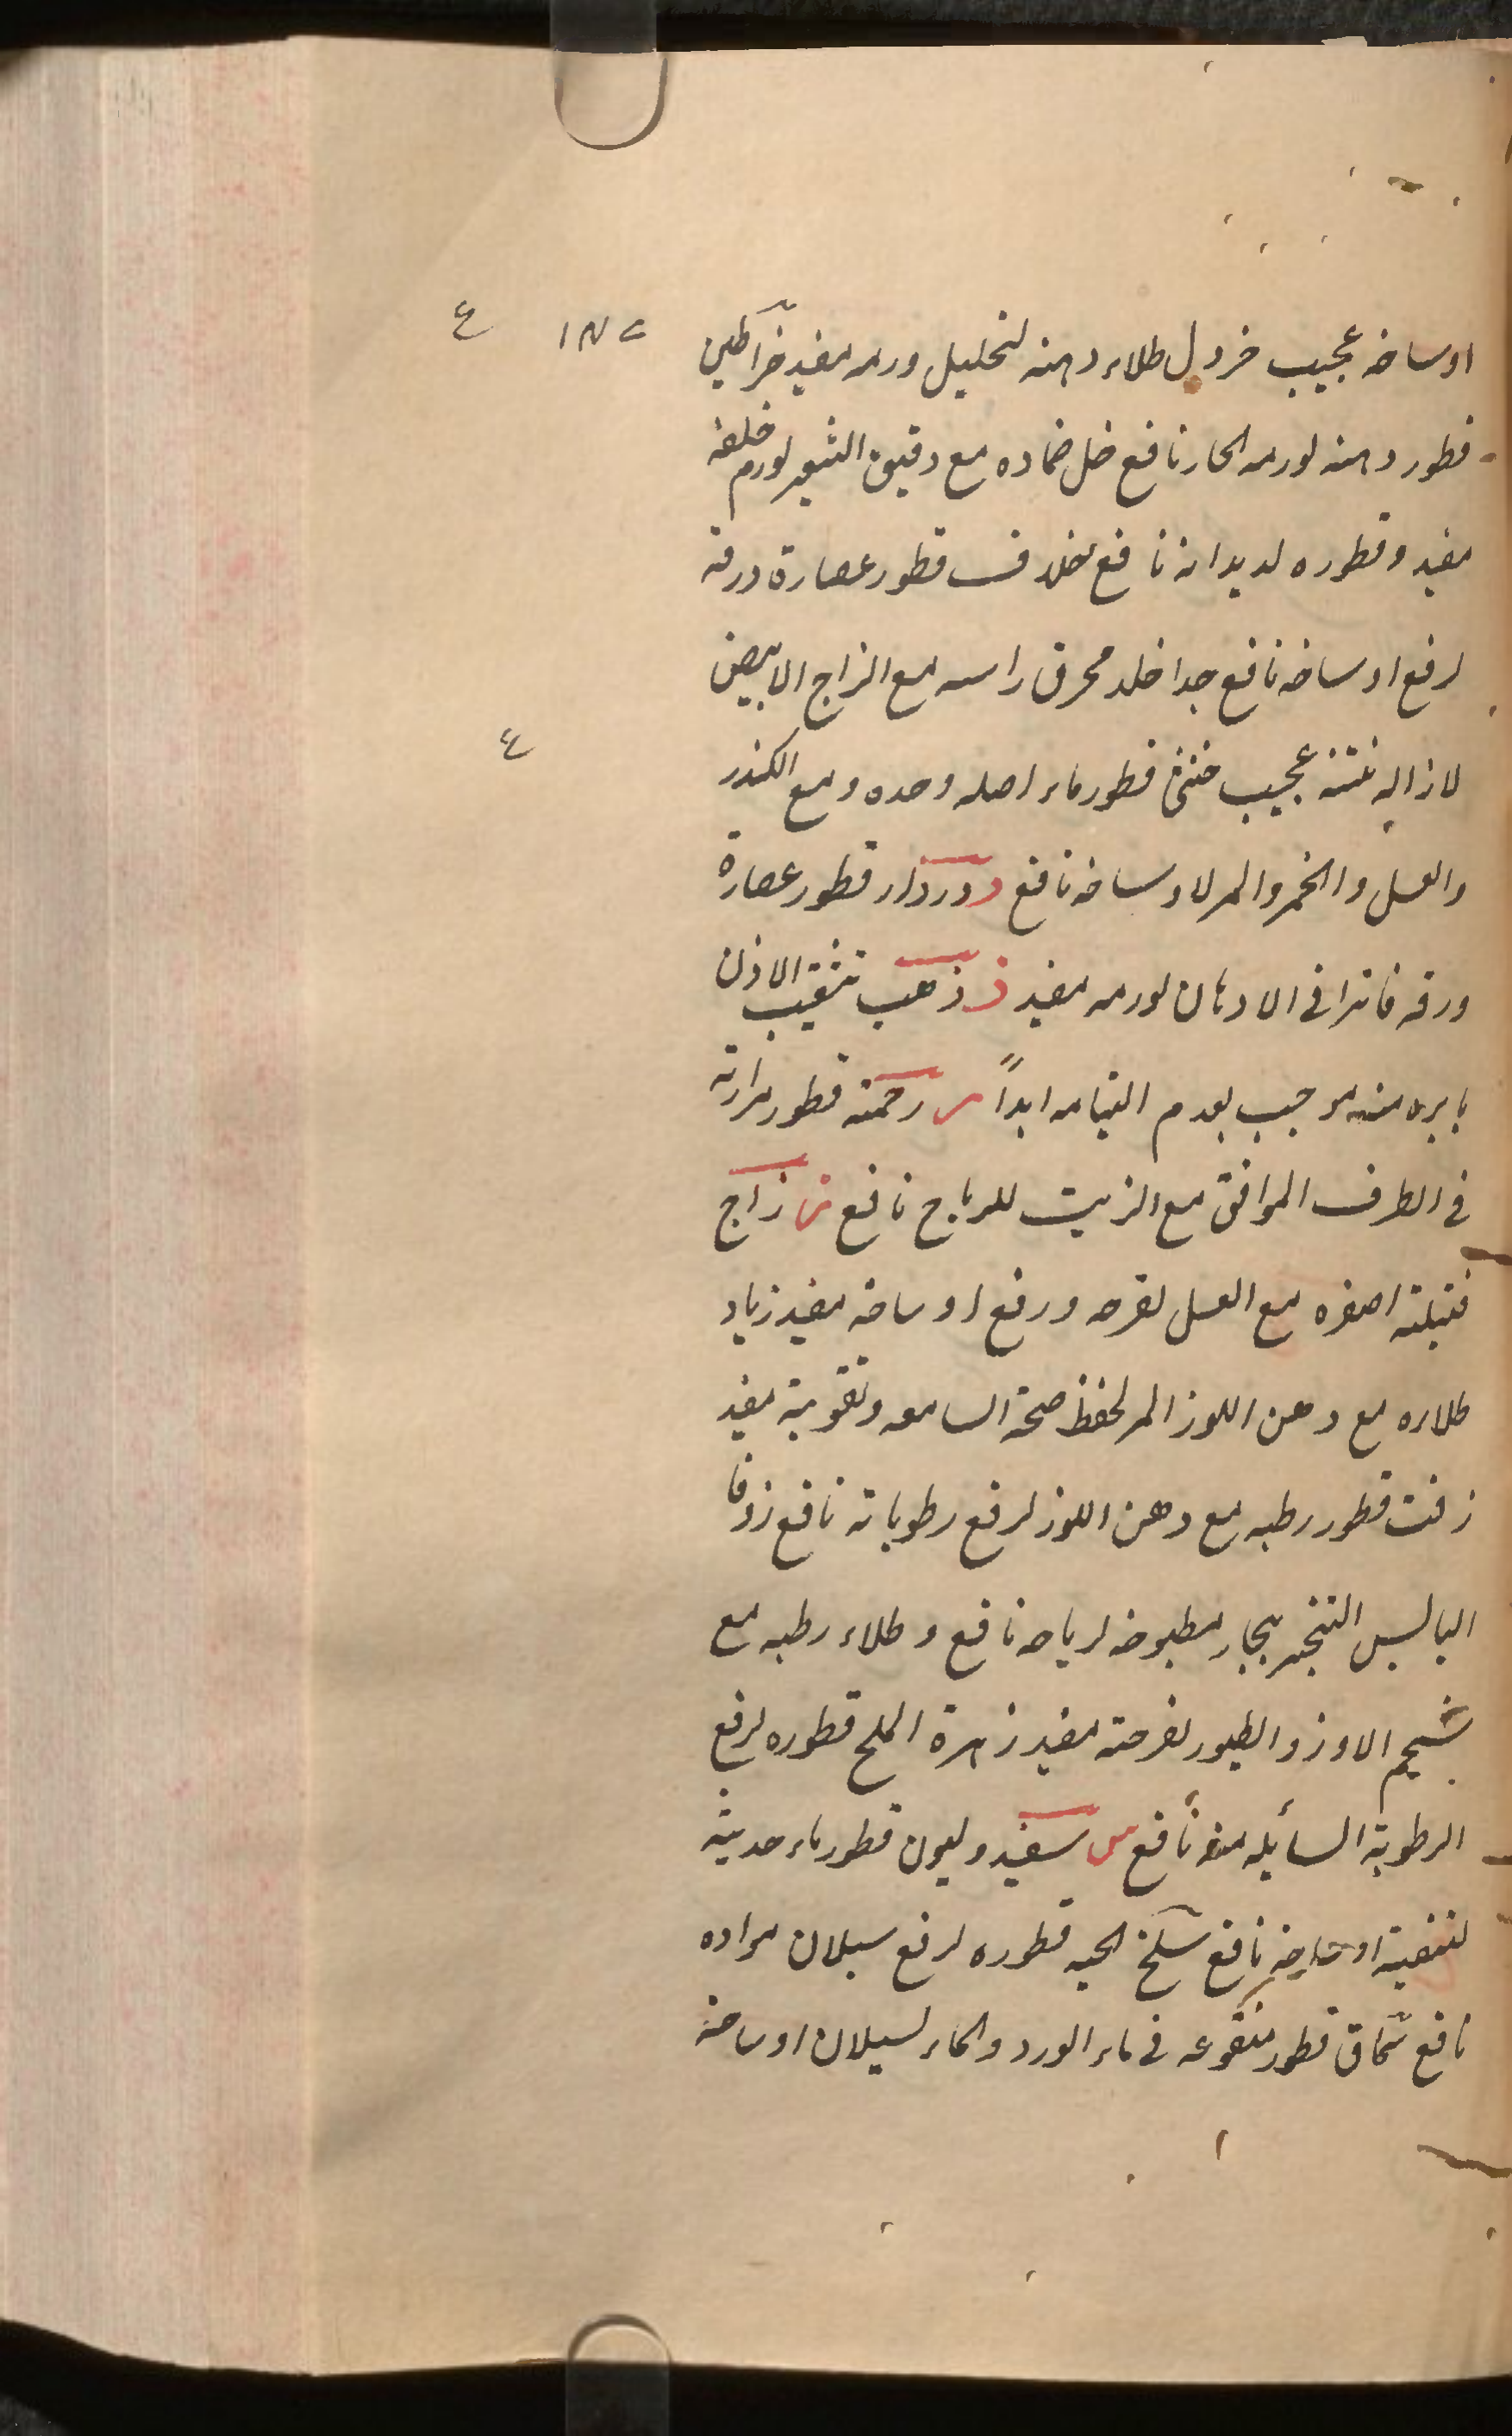 اوساخه عجيب خردل طلاء دهنه لتحليل ورمه مفيد خراطين
قطور دهنه لورمه الحار نافع خل ضماده مع دقيق الشعير لورم خلفه
مفيد وقطوره لديدانه نافع خلاف قطور عصارة ورقه
لرفع اوساخه نافع جدا خلد محرق راسه مع الزاج الابيض
لازاله نتنه عجيب خنثى قطور ماء اصله وحده ومع الكندر
والعسل والخمر والمر لاوساخه نافع د دردار قطور عصارة
ورقه فاترا فى الادهان لورمه مفيد ذ ذهب تثقيب الاذن
بابره منه موجب لعدم التيامه ابداً ر رخمه قطور مرارته
فى الطرف الموافق مع الزيت للرياح نافع ز زاج
فتيلته اصفره مع العسل لقرحه ورفع اوساخه مفيد زباد
طلاءه مع دهن اللوز المر لحفظ صحة السامعه وتقوية مفيد
زفت قطور رطبه مع دهن اللوز لرفع رطوباته نافع زوفا
اليابس التبخير ببخار مطبوخه لرياحه نافع وطلاء رطبه مع
شحم الاوز والطيور لقرحته مفيد زهرة الملح قطوره لرفع
الرطوبة السائله منه نافع س سفيد وليون قطور ماء حديثه
لتنقية نافع سلخ الحيه قطوره لرفع سيلان مواده
نافع سماق قطور منقوعه فى ماء الورد والماء لسيلان اوساخه